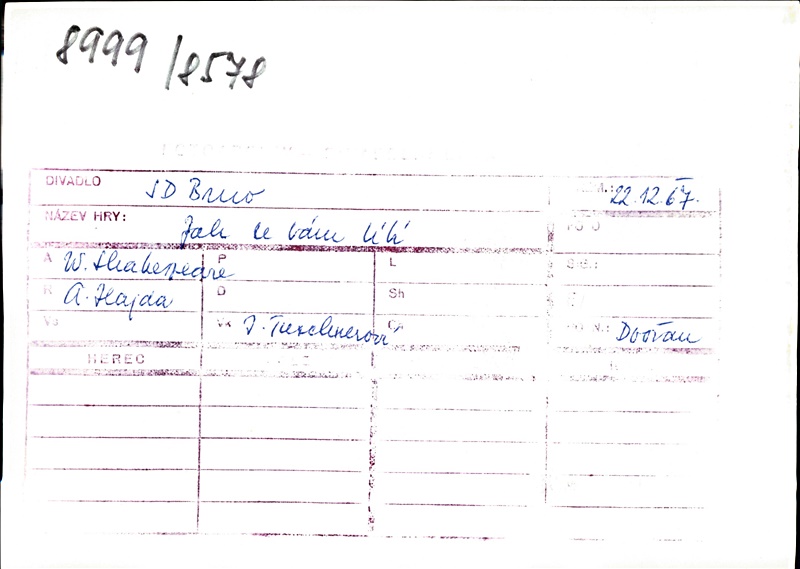 8999/8578
DIVADLO SD Brno 22.12.67.
NÁZEV HRY: Jak se vám líbí
A W. Shakespeare P L
R A. Hajda D Sh
Vk J. Tuschnerová Dvořan
HEREC